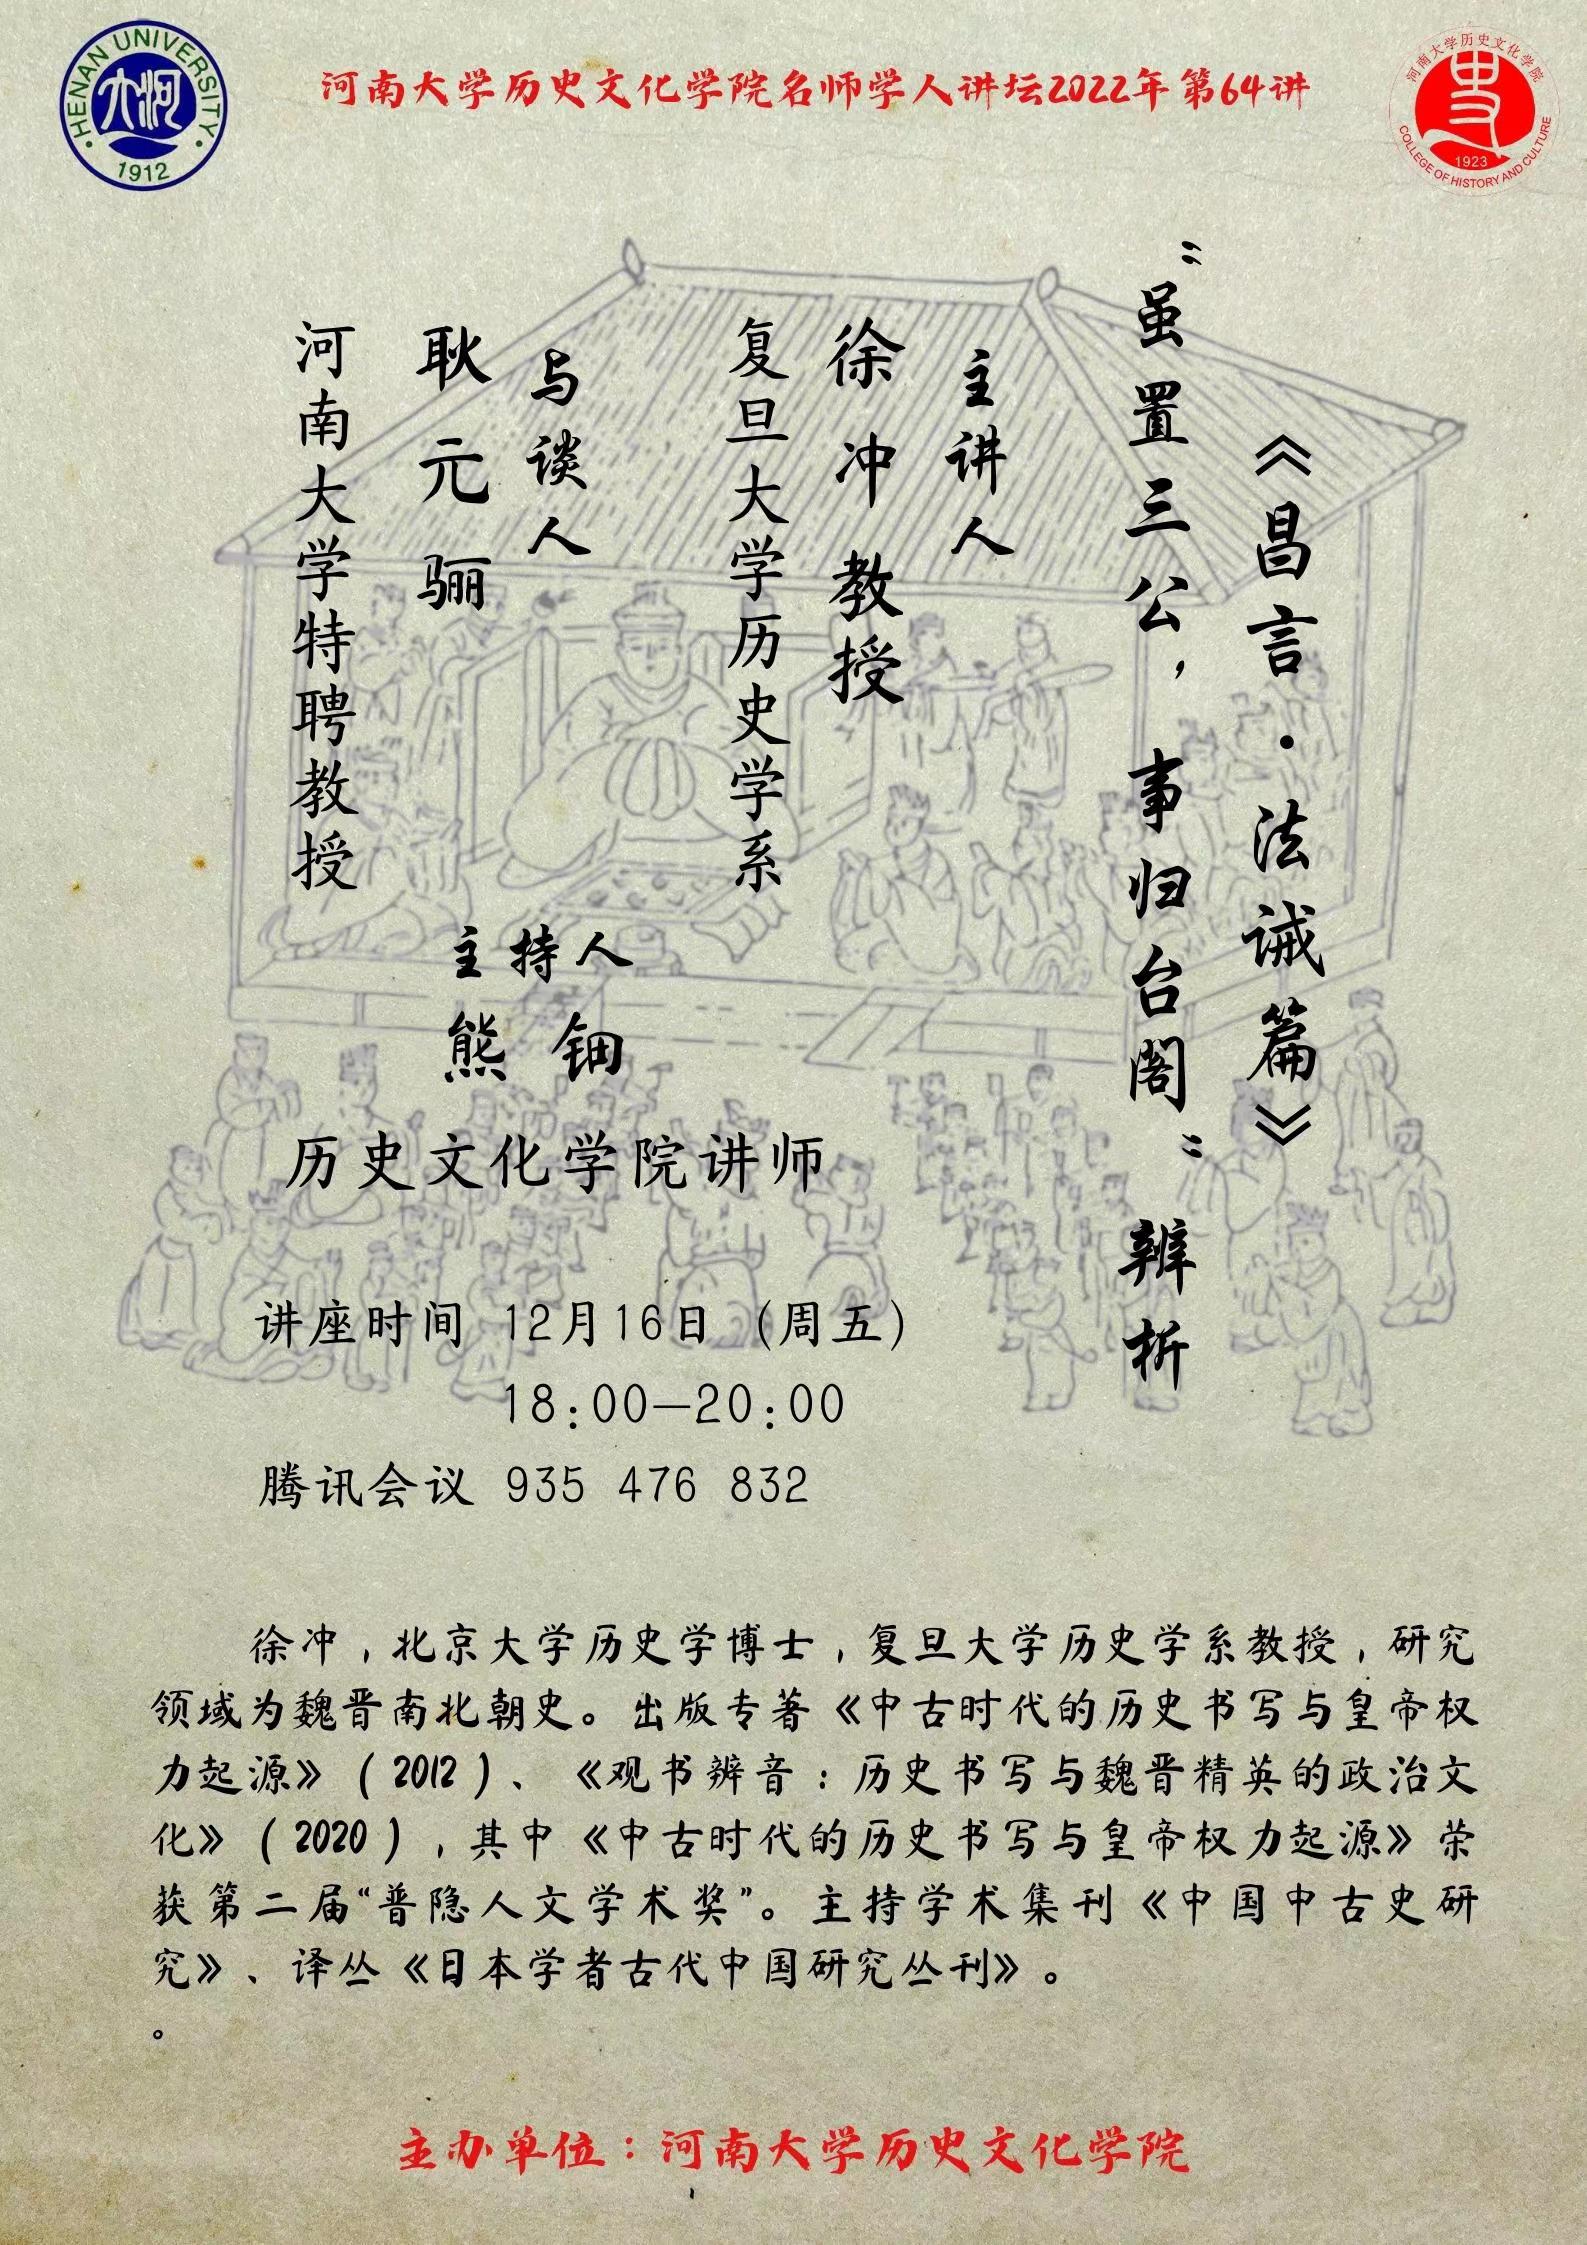 HENAN UNIVERSITY
1912
河南大学历史文化学院名师学人讲坛2022年第64讲
河南大学历史文化学院
1923
COLLEGE OF HISTORY AND CULTURE
《昌言·法诫篇》
“虽置三公，事归台阁”辨析
主讲人
徐冲 教授
复旦大学历史学系
与谈人
耿元骊
河南大学特聘教授
主持人
熊 钿
历史文化学院讲师
讲座时间 12月16日（周五）
18:00—20:00
腾讯会议 935 476 832
徐冲，北京大学历史学博士，复旦大学历史学系教授，研究
领域为魏晋南北朝史。出版专著《中古时代的历史书写与皇帝权
力起源》（2012）、《观书辨音：历史书写与魏晋精英的政治文
化》（2020），其中《中古时代的历史书写与皇帝权力起源》荣
获第二届“普隐人文学术奖”。主持学术集刊《中国中古史研
究》、译丛《日本学者古代中国研究丛刊》。
。
主办单位：河南大学历史文化学院